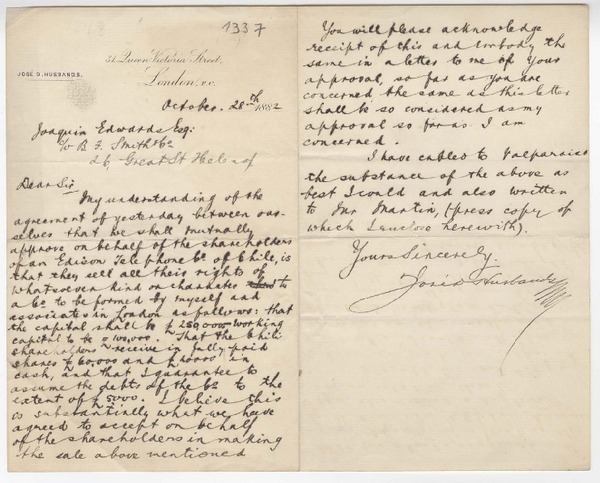 1337
51 Queen Victoria Street,
JOSÉ D. HUSBANDS.
London, E.C.
October 28th 1882
Joaquin Edwards Esq:
B. F. Smith & Co
26, Great St Helens
Dear Sir
My understanding of the
agreement of yesterday between our-
selves that we shall mutually
approve on behalf of the shareholders
of an Edison Telephone Co. of Chile, is
that they sell all their rights of
whatsoever kind or character to
a Co. to be formed by myself and
associates in London as follows: that
the capital shall be £ 250,000 working
capital to be 100,000. That the Chili
shareholders receive in fully paid
shares £ 60,000 and £ in
cash, and that I guarantee to
assume the debts of the Co to the
extent of £ 5000. I believe this
is substantially what we have
agreed to accept on behalf
of the shareholders in making
the sale above mentioned
You will please acknowledge
receipt of this and embody the
same in a letter to me of your
approval, so far as you are
concerned the same as this letter
shall be so considered as my
approval so far as I am
concerned.
I have cabled to Valparaiso
the substance of the above as
best I could and also written
to Mr Martin, (press copy of
which I enclose herewith).
Yours Sincerely.
José D Husbands